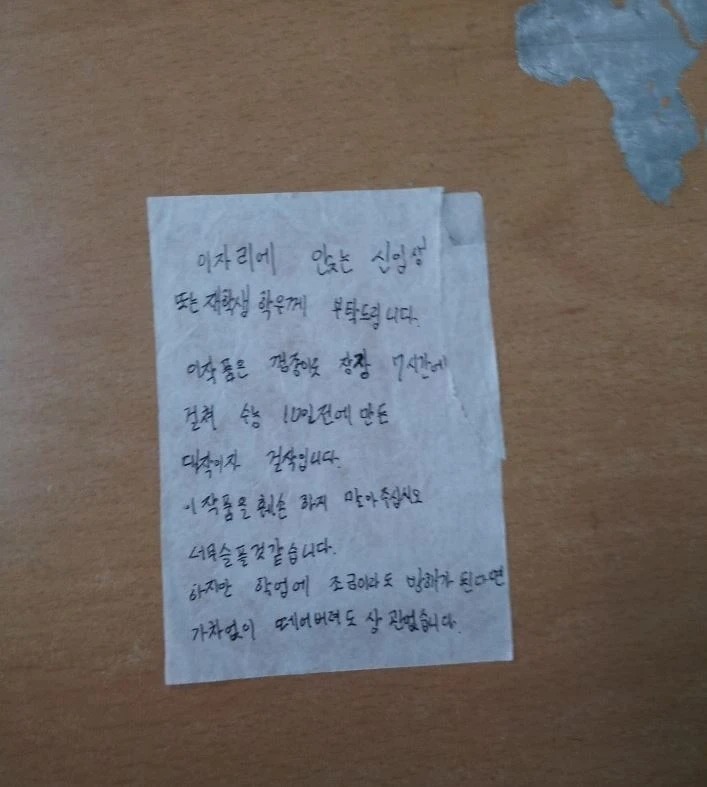 이자리에 앉는 신입생
또는 재학생 학우께 부탁드립니다.
이작품은 장장 7시간에
걸쳐 수능 10일전에 만든
대작이자 걸작입니다.
이 작품을 훼손 하지 말아주십시오
너무슬플것같습니다.
하지만 학업에 조금이라도 방해가 된다면
가차없이 떼어버려도 상관없습니다.